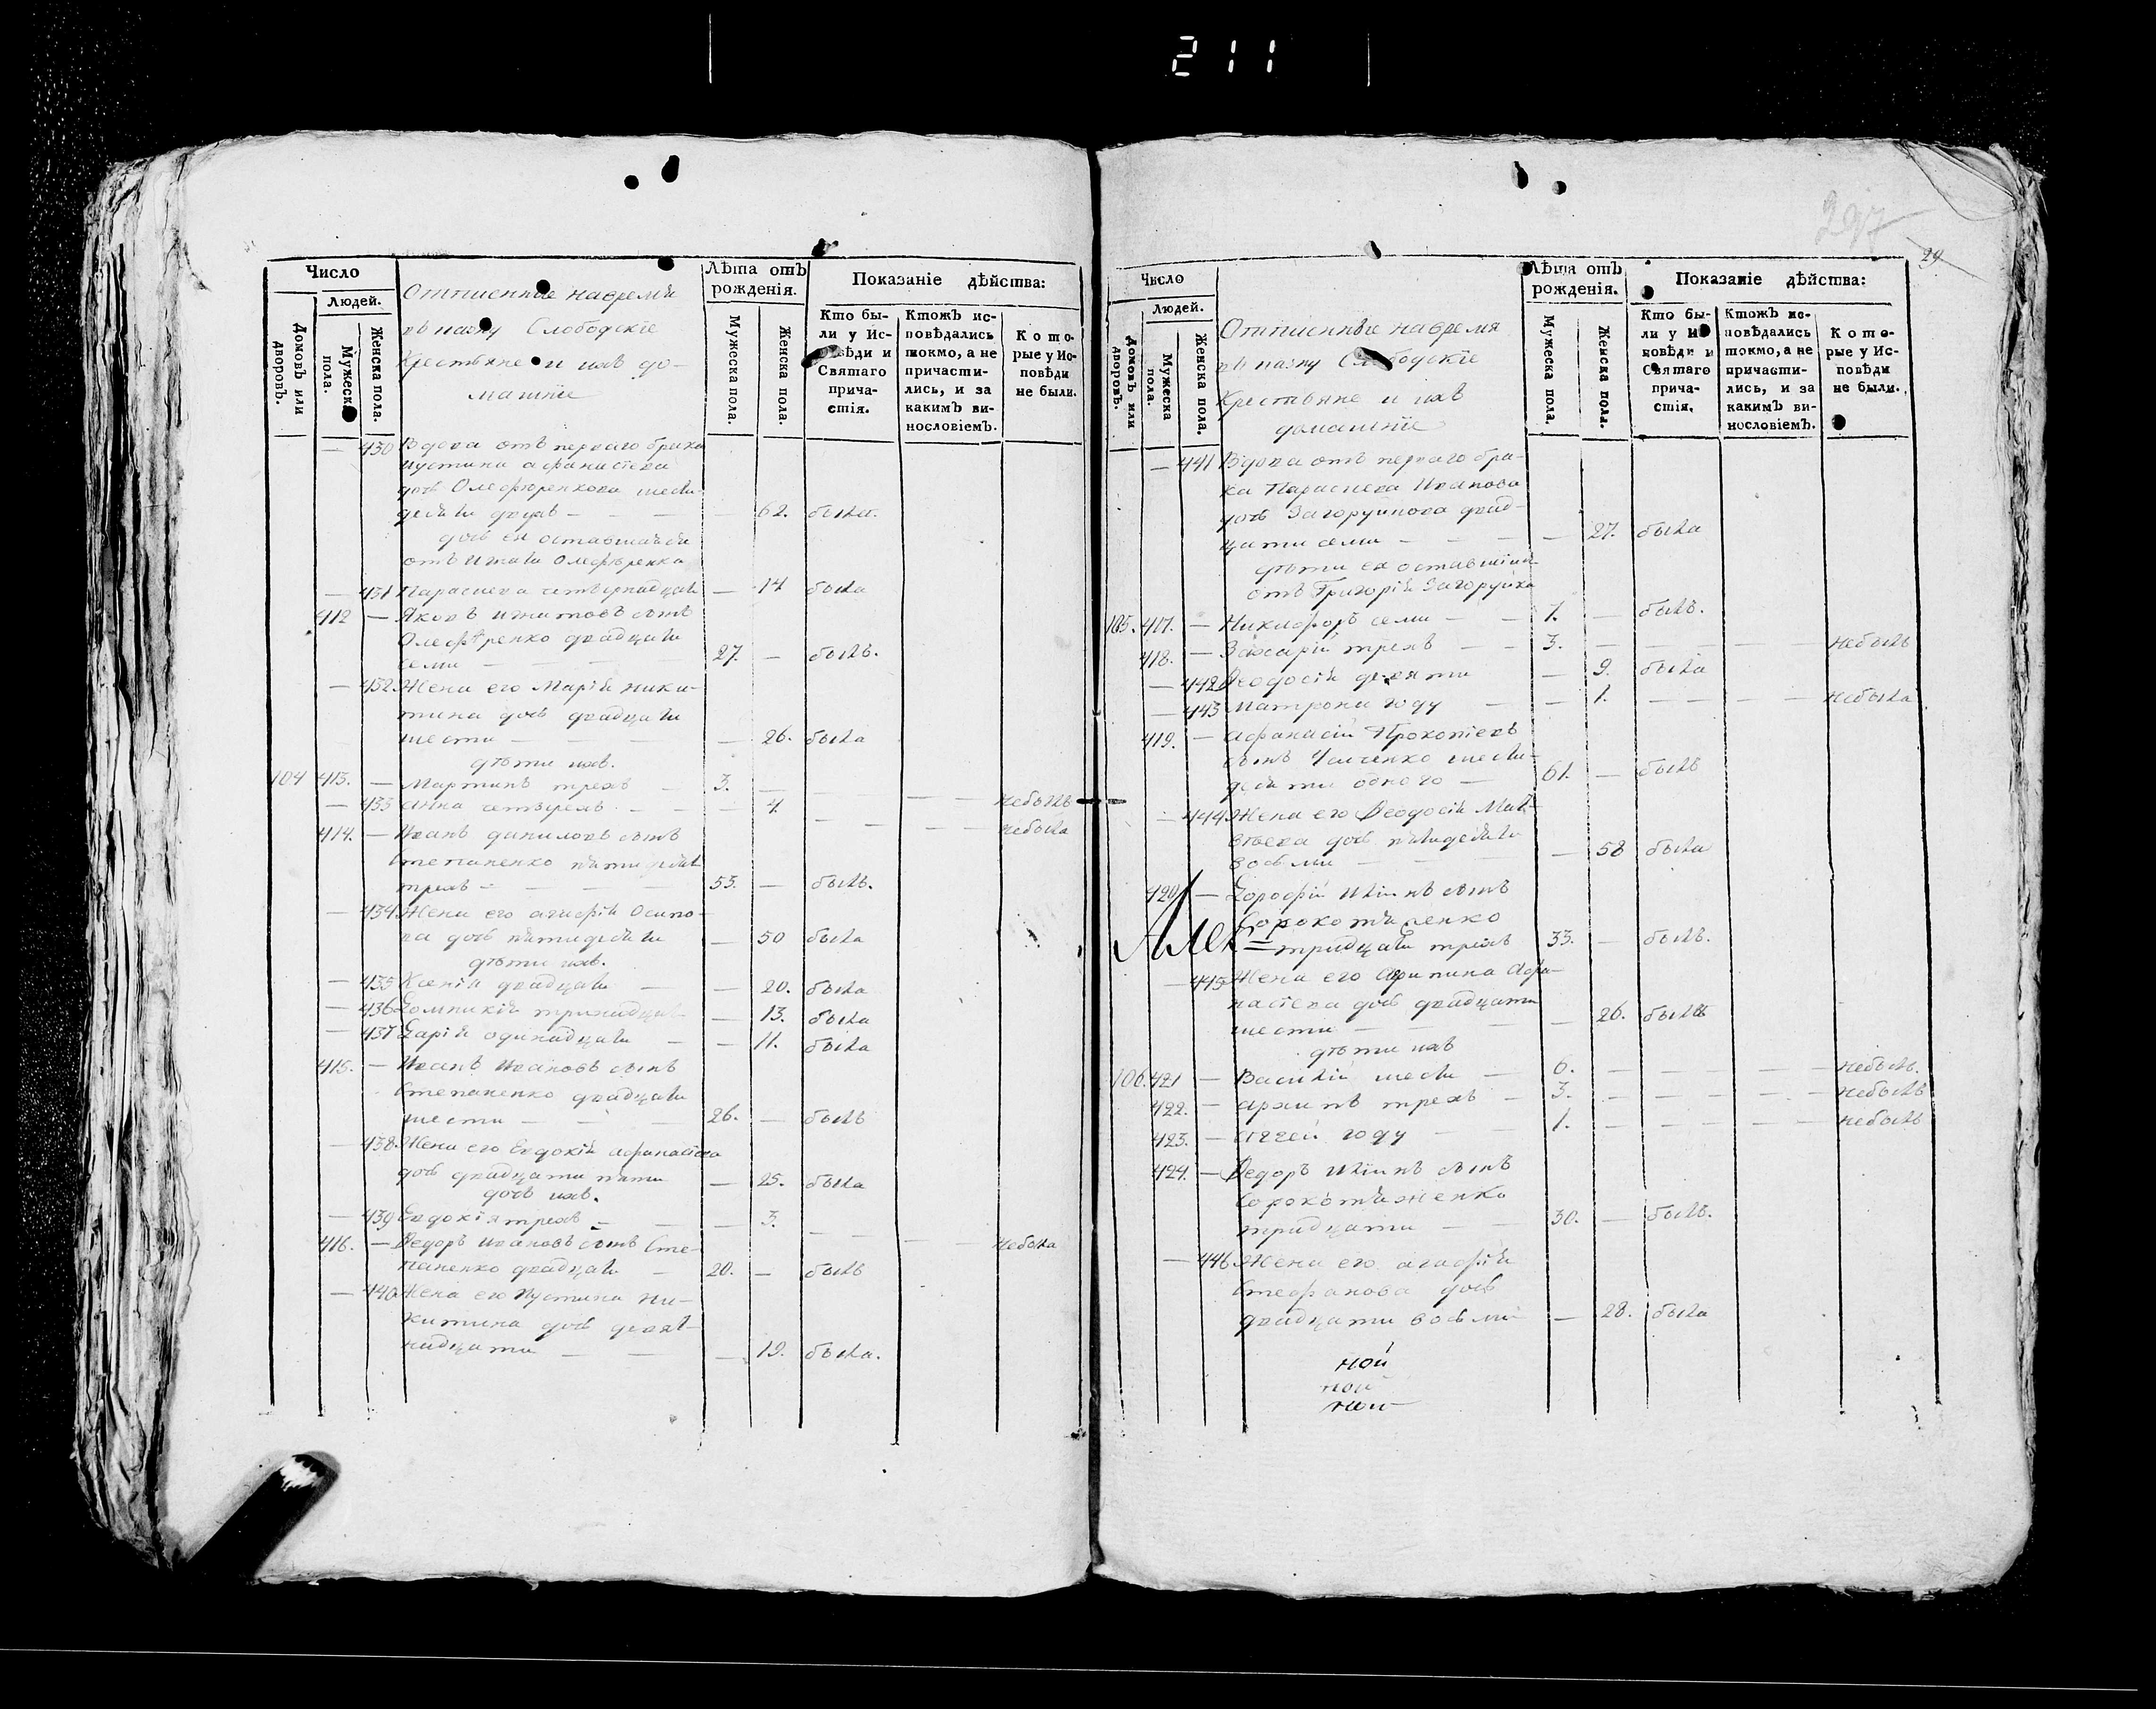 211
297
29
Число
Людей.
Домовъ или дворовъ.
Мужеска пола.
Женска пола.
Отписенные навремя
въ казну Слободскіе
Крестьяне и ихъ до-
машніе
Лѣта отъ рожденія.
Мужеска пола.
Женска пола.
Показаніе дѣйства:
Кто бы-
ли у Ис-
повѣди и
Святаго
прича-
стія.
Ктожъ ис-
повѣдались
токмо, а не
причасти-
лись, и за
какимъ ви-
нословіемъ.
Кото-
рые у Ис-
повѣди
не были.
— 430 Вдова отъ перваго брака
Іустина Афанасіева
дочь Олефѣренкова шесть-
десятъ двухъ — — 62. была.
дочь ея оставшаяся
отъ Игната Олефѣренка
— 431 Параскева четырнадцати — 14 была
412 — Яковъ Игнатовъ сынъ
Олефѣренко двадцати
семи — 27. — былъ.
— 432. Жена его Марія Ники-
тина дочь двадцати
шести — — 26. была
дѣти ихъ.
104 413. — Мартинъ трехъ — 3. — — — небылъ
— 433 Анна четырехъ — — 4. — — — небыла
414. — Иванъ Даниловъ сынъ
Степаненко пятидесятъ
трехъ — 53. — былъ.
— 434 Жена его Агафія Осипо-
ва дочь пятидесяти — 50 была
дѣти ихъ.
— 435 Ксенія двадцати — — 20. была
— 436 Домникія тринадцать — 13. была
— 437 Дарія одинадцати — — 11. была
415. — Иванъ Ивановъ сынъ
Степаненко двадцати
шести — 26. — былъ
— 438. Жена его Евдокія Афанасіева
дочь двадцати пяти — 25. была
дочь ихъ.
— 439 Евдокія трехъ — — 3. — — — небыла
416. — Ѳедоръ Ивановъ сынъ Сте-
паненко двадцати — 20. — былъ
— 440 Жена его Іустина Ни-
китина дочь девят-
надцати — — 19. была.
Число
Людей.
Домовъ или дворовъ.
Мужеска пола.
Женска пола.
Отписенные навремя
въ казну Слободскіе
Крестьяне и ихъ
домашніе
Лѣта отъ рожденія.
Мужеска пола.
Женска пола.
Показаніе дѣйства:
Кто бы-
ли у Ис-
повѣди и
Святаго
прича-
стія.
Ктожъ ис-
повѣдались
токмо, а не
причасти-
лись, и за
какимъ ви-
нословіемъ.
Кото-
рые у Ис-
повѣди
не были.
— 441 Вдова отъ перваго бра-
ка Параскева Иванова
дочь Загоруйкова двад-
цати семи — — 27. была
дѣти ея оставшіяся
отъ Григорія Загоруйка
105. 417. — Никифоръ семи — 7. — былъ.
418. — Захарій трехъ — 3. — — — небылъ
— 442 Ѳеодосія девяти — 9. была
— 443 Матрона году — — 1. — — — небыла
419. — Афанасій Прокопіевъ
сынъ шесть-
десяти одного — 61. — былъ
— 444 Жена его Ѳеодосія Мат-
ѳѣева дочь пятидесяти
восьми — — 58 была
420 — Дорофій Ильинъ сынъ
Сорокотяженко
Алек= тридцати трехъ 33. — былъ.
— 445 Жена его Агрипина Афа-
насіева дочь двадцати
шести — — 26. была
дѣти ихъ
106. 421 — Василій шести — 6. — — — небылъ.
422. — Архипъ трехъ — 3. — — — небылъ
423. — году — 1. — — — небылъ
424. — Ѳедоръ Ильинъ сынъ
Сорокотяженко
тридцати — 30. — былъ.
— 446 Жена его Агафія
Стефанова дочь
двадцати восьми — 28. была
ной
ной
ной